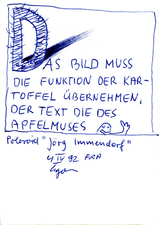 DAS BILD MUSS
DIE FUNKTION DER KAR-
TOFFEL ÜBERNEHMEN,
DER TEXT DIE DES
APFELMUSES
Polaroid "Jörg Immendorf"
4 IV 92 FRA